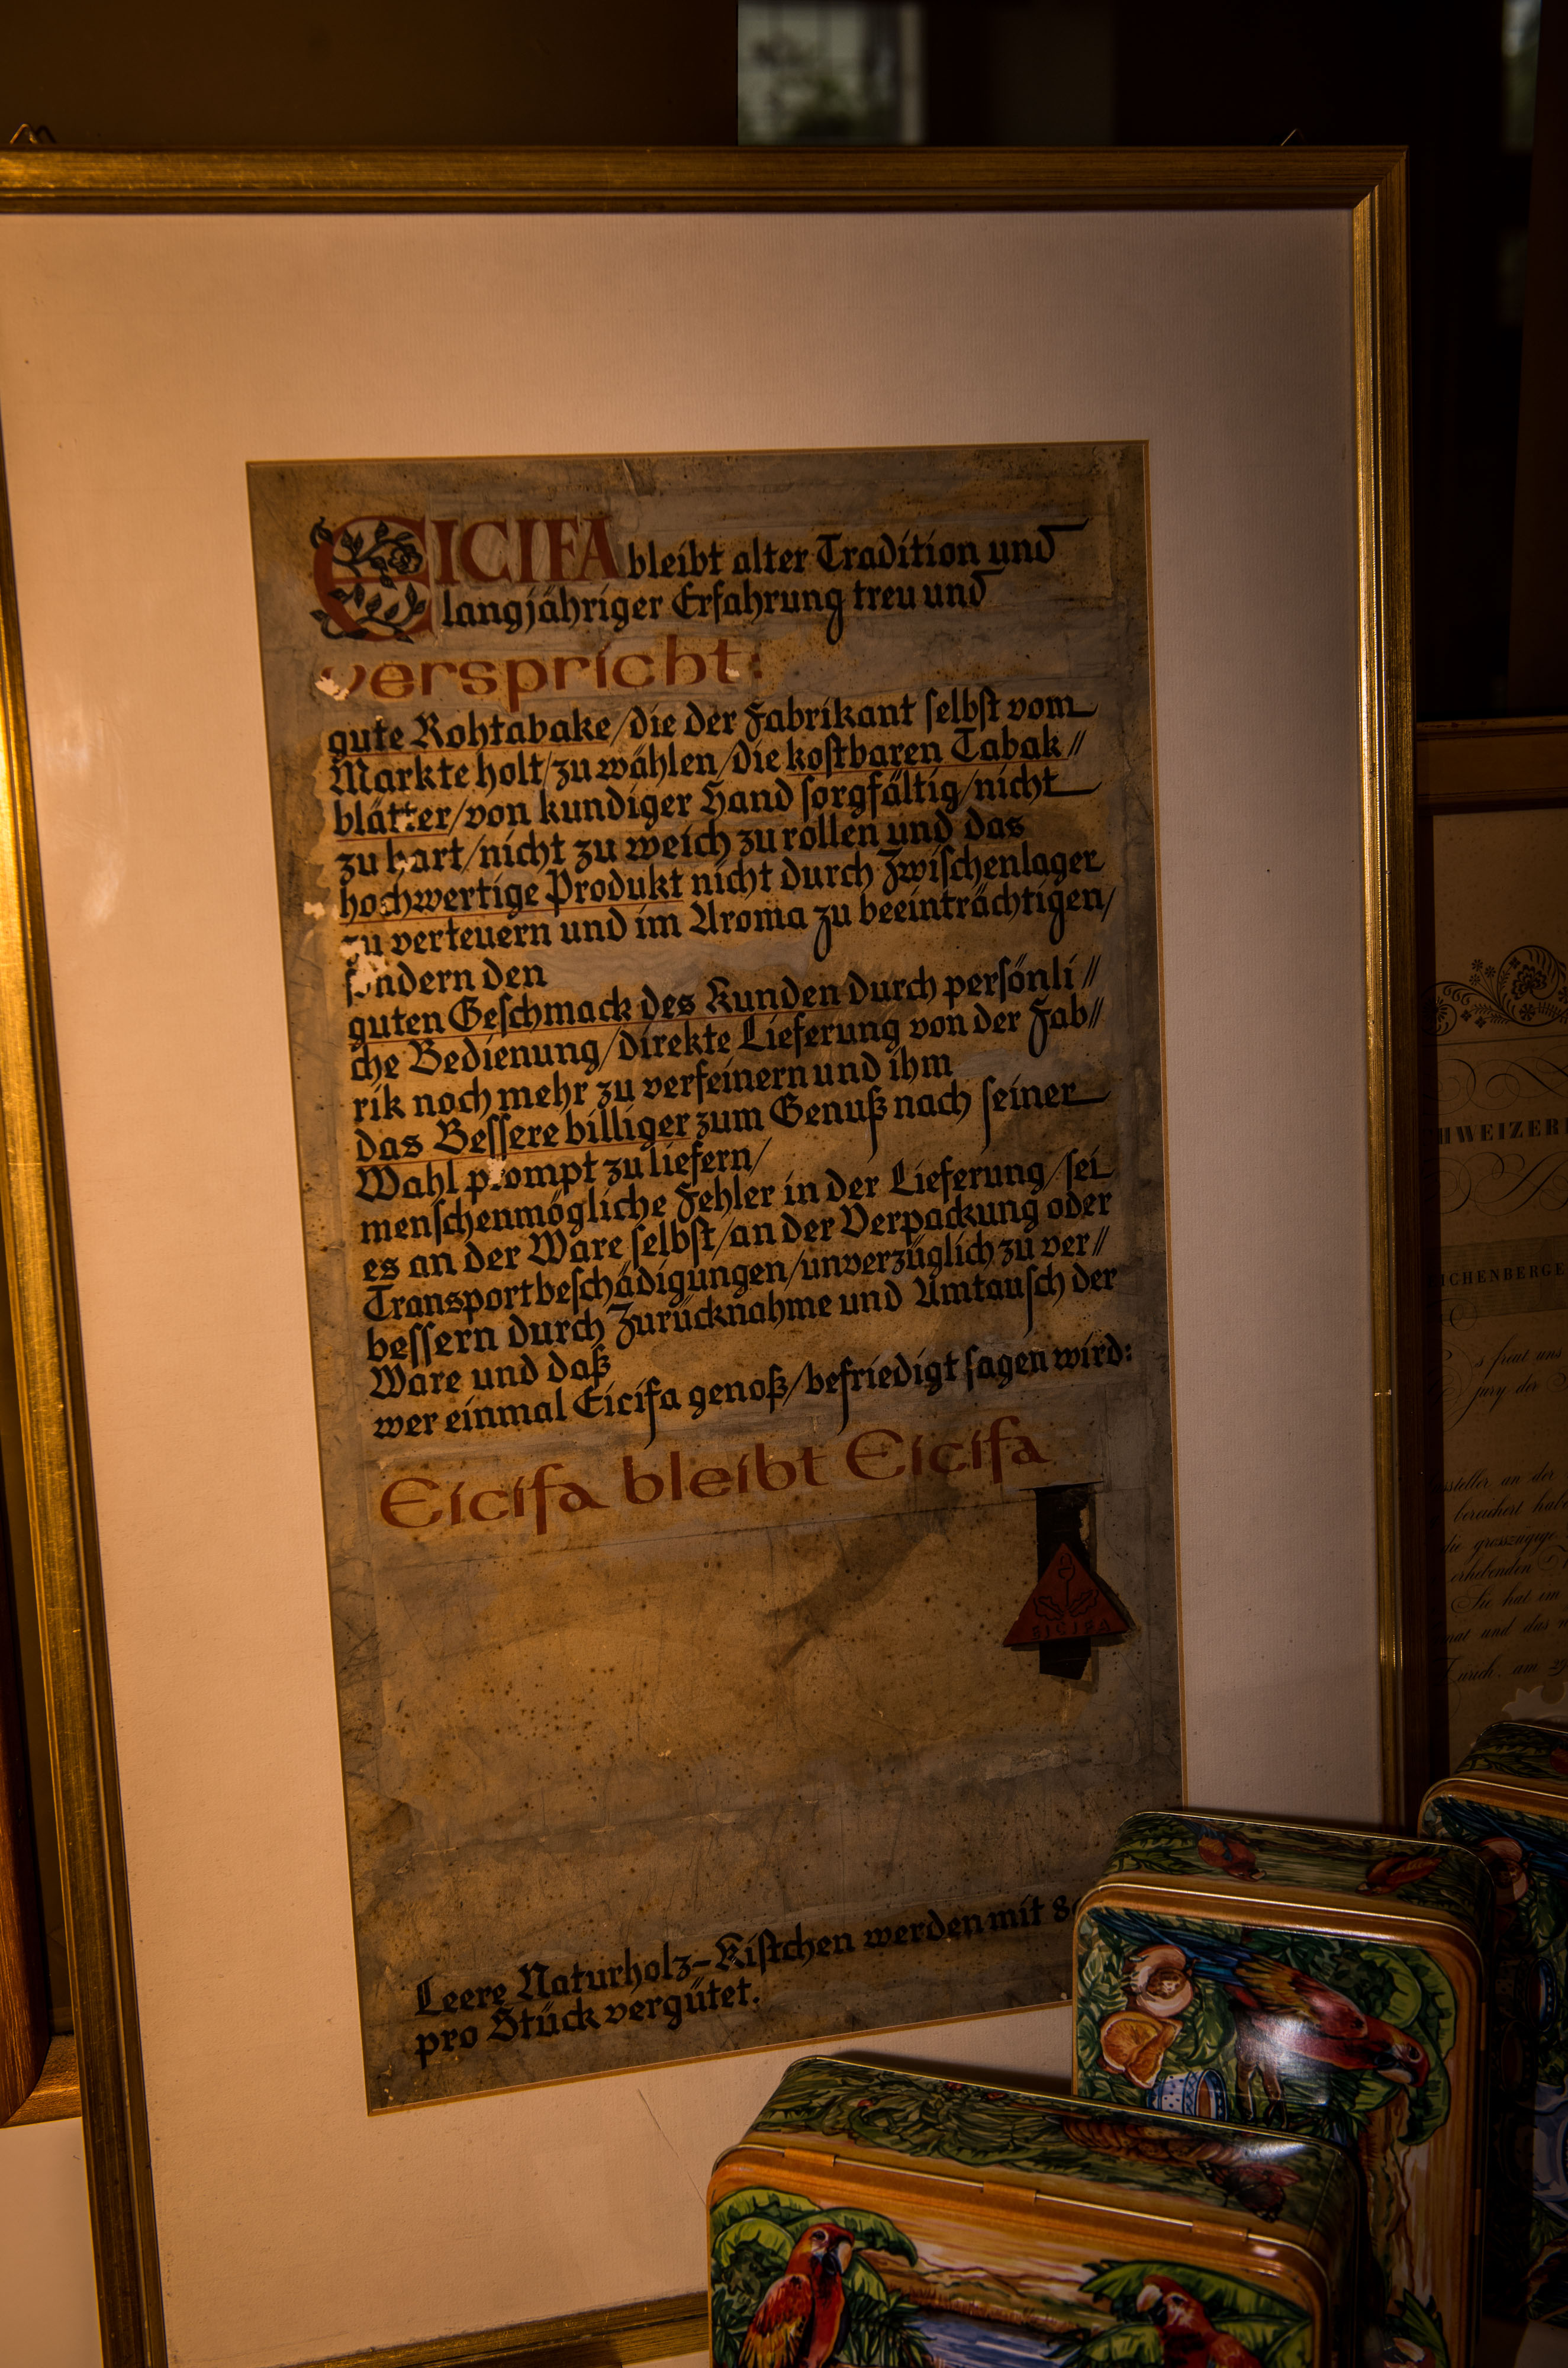 EICIFA bleibt alter Tradition und
langjähriger Erfahrung treu und
verspricht:
gute Rohtabake/die der Fabrikant selbst vom
Markte holt/zu wählen/die kostbaren Tabak//
blätter/von kundiger Hand sorgfältig/nicht
zu hart/nicht zu weich zu rollen und das
hochwertige Produkt nicht durch Zwischenlager
zu verteuern und im Aroma zu beeinträchtigen/
sondern den
guten Geschmack des Kunden durch persönli//
che Bedienung/direkte Lieferung von der Fab//
rik noch mehr zu verfeinern und ihm
das Bessere billiger zum Genuß nach seiner
Wahl prompt zu liefern/
menschenmögliche Fehler in der Lieferung/sei
es an der Ware selbst/an der Verpackung oder
Transportbeschädigungen/unverzüglich zu ver//
bessern durch Zurücknahme und Umtausch der
Ware und daß
wer einmal Eicifa genoß/befriedigt sagen wird:
Eicifa bleibt Eicifa
EICIFA
Leere Naturholz-Kistchen werden mit
pro Stück vergütet.
HWEIZER
ICHENBERGE
s freut uns
jury der
ssteller an der
bereichert hab
die grosszügige
erhebenden
Sie hat im
nat und das
Zürich, am 29